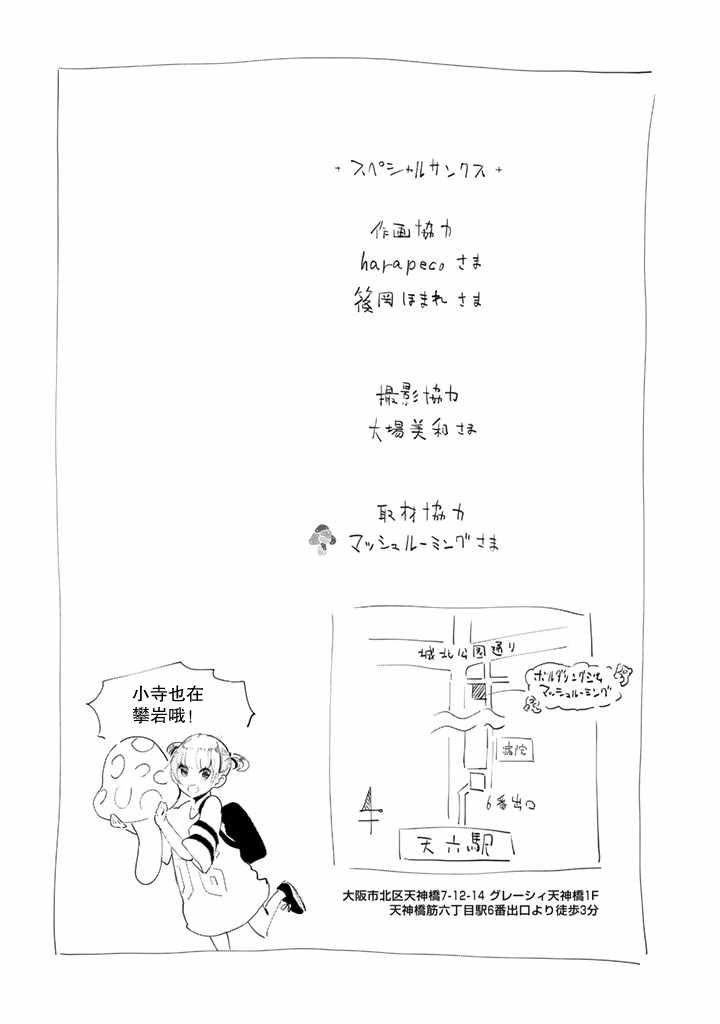 スペシャルサンクス
作画協力
harapecoさま
篠岡ほまれさま
撮影協力
大場美和さま
取材協力
マッシュルーミングさま
城北公園通り
ボルダリングジム
マッシュルーミング
病院
6番出口
天六駅
小寺也在
攀岩哦!
大阪市北区天神橋7-12-14 グレーシィ天神橋1F
天神橋筋六丁目駅6番出口より徒歩3分